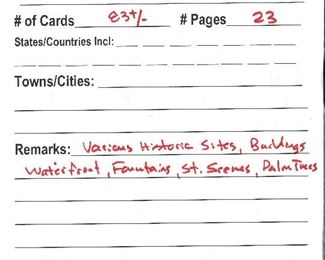 # of Cards 83+/- # Pages 23
States/Countries Incl:
Towns/Cities:
Remarks: Various Historic Sites, Buildings
Waterfront, Fountains, St. Scenes, Palm Trees